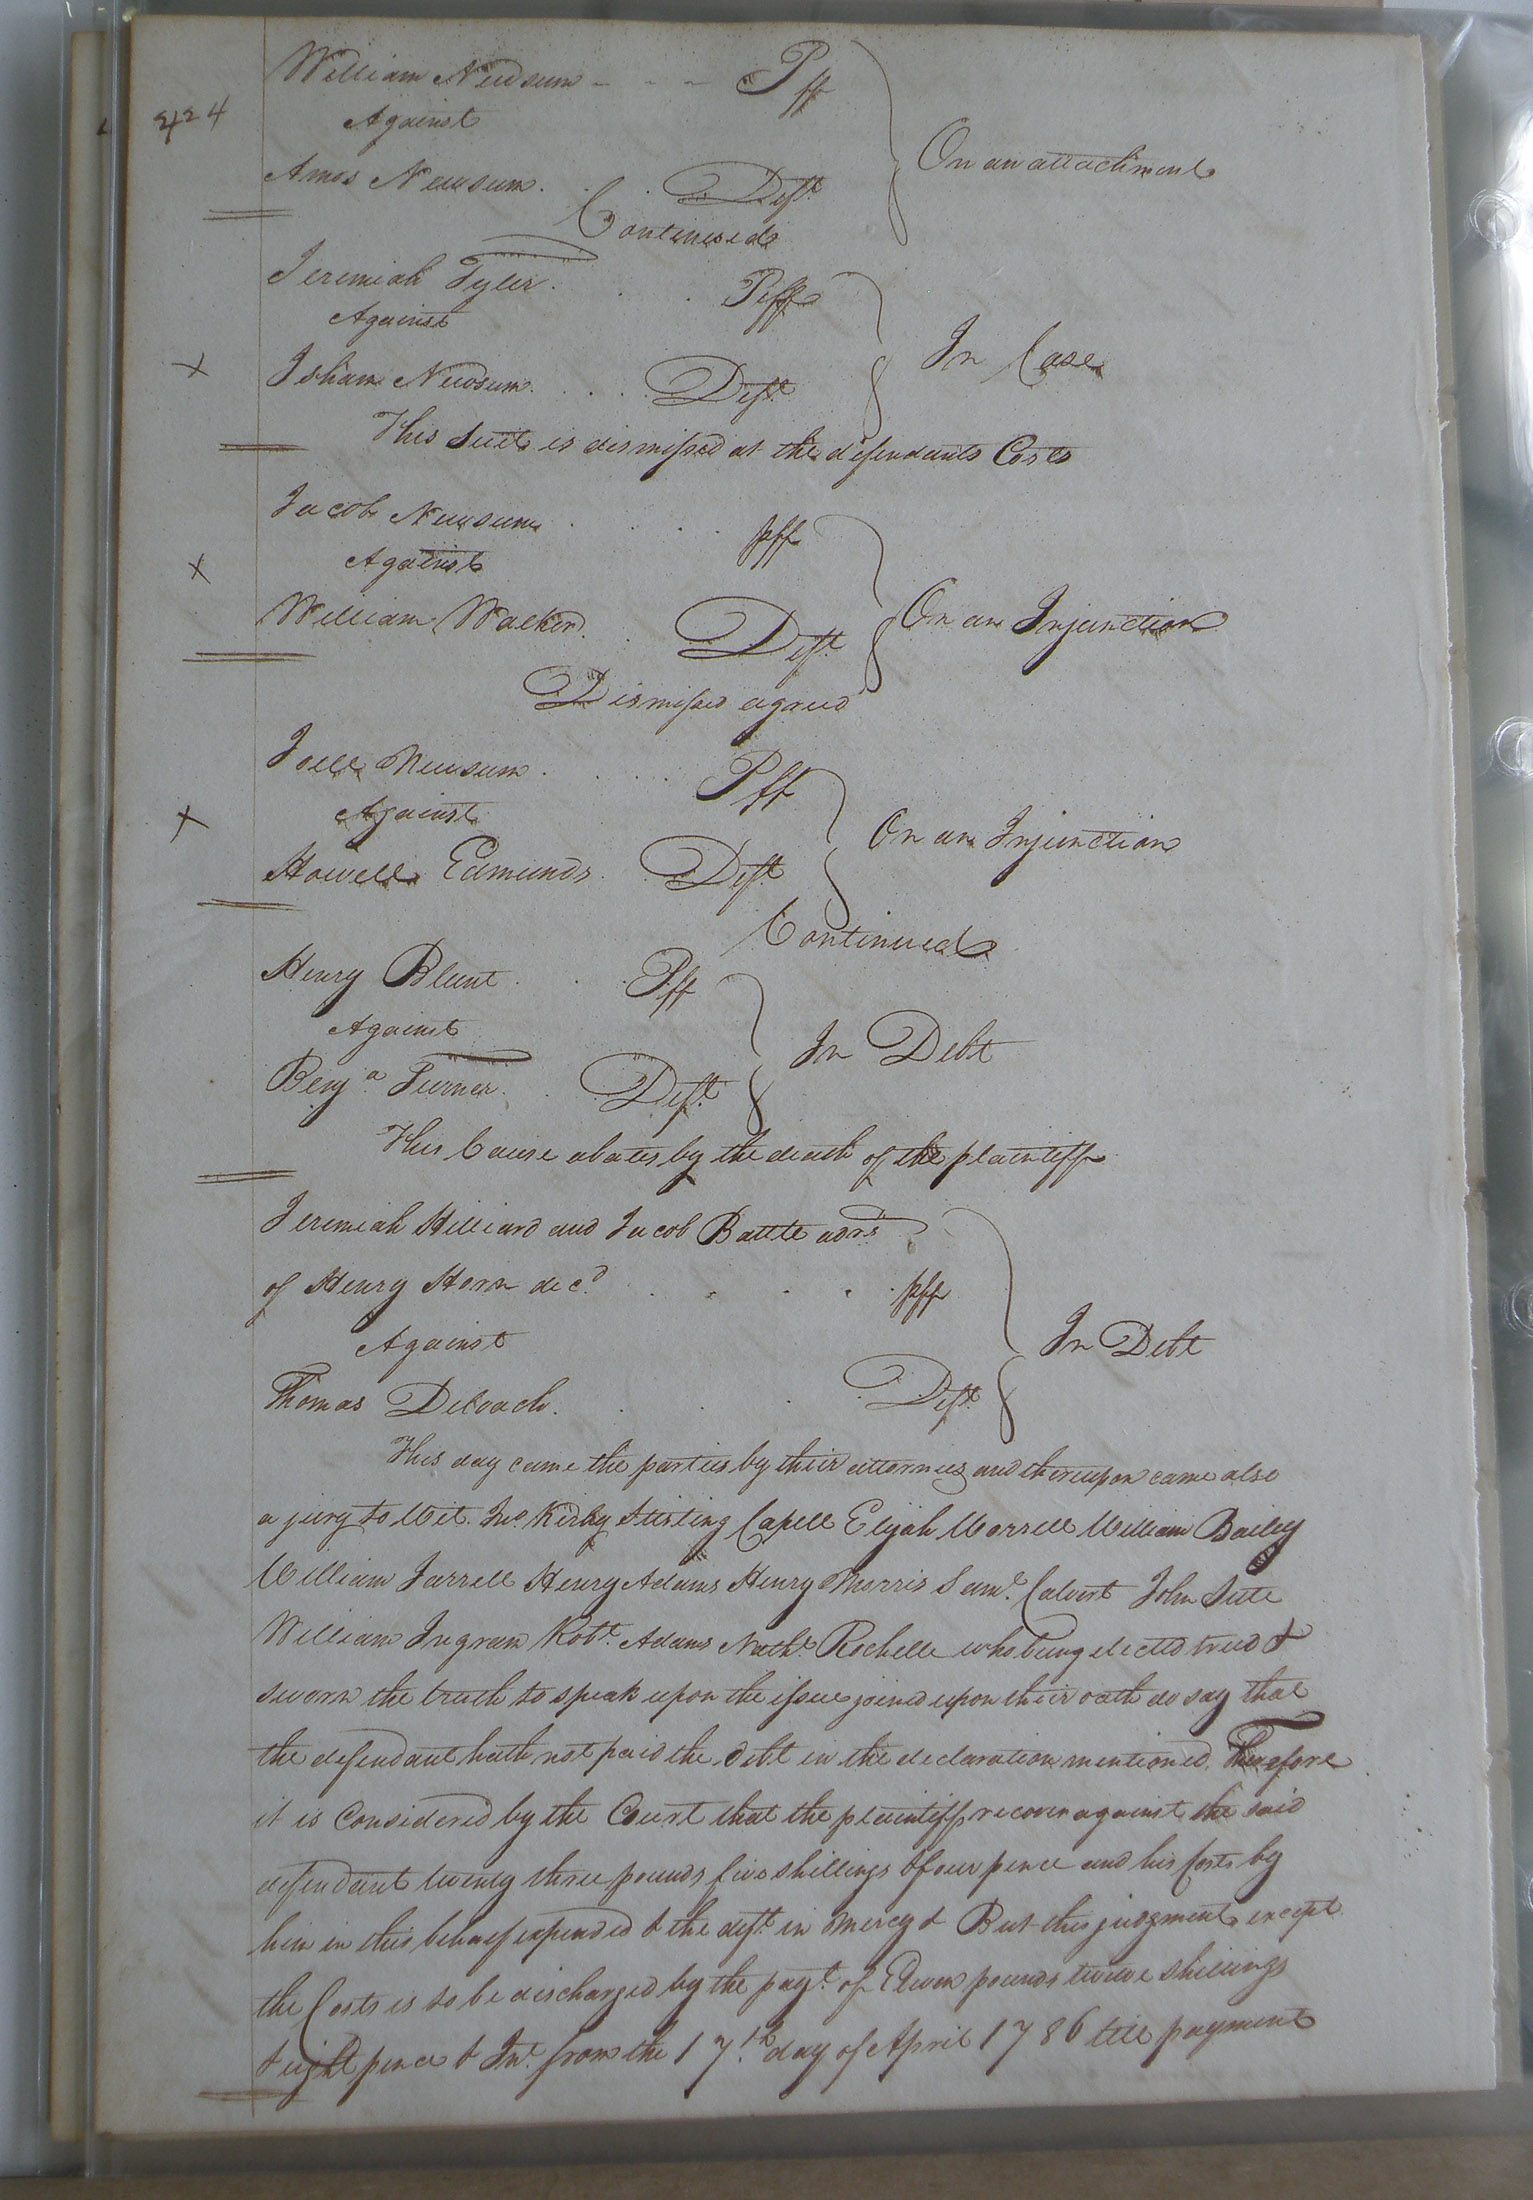 424
William Newsum - - - Pff
Against
Amos Newsum. . . Deft
On an attachment
Continued
Jeremiah Tyler. . . Plff
Against
Isham Newsum. . . . Deft
In Case
This Suit is dismissed at the defendants Costs
Jacob Newsum . . . pff
Against
William Walker. . Deft
On an Injunction
Dismissed agreed
Joell Newsum . . . . Pff
Against
Howell Edmunds. . Deft
On an Injunction
Continued
Henry Blunt . . . Pff
Against
Benja Turner. . . Deft
In Debt
This Cause abates by the death of the plaintiff
Jeremiah Hilliard and Jacob Battle adrs
of Henry Horn decd . . . . . pff
Against
Thomas Deloach. . . . Deft
In Debt
This day came the parties by their attornies and thereupon came also
a jury to Wit. Jno Kirby Sterling Capell Elijah Worrell William Bailey
William Jarrell Henry Adams Henry Morris Saml Calvert John
William Ingram Robt Adams Nathl Rochelle who being elected tried &
sworn the truth to speak upon the issue joined upon their oath do say that
the defendant hath not paid the debt in the declaration mentioned. Therefore
it is Considered by the Court that the plaintiff recover against the said
defendant twenty three pounds five shillings & four pence and his Costs by
him in this behalf expended & the deft in mercy & But this judgment except
the Costs is to be discharged by the payt of Eleven pounds twelve shillings
& eight pence & Int from the 17th day of April 1786 till payment